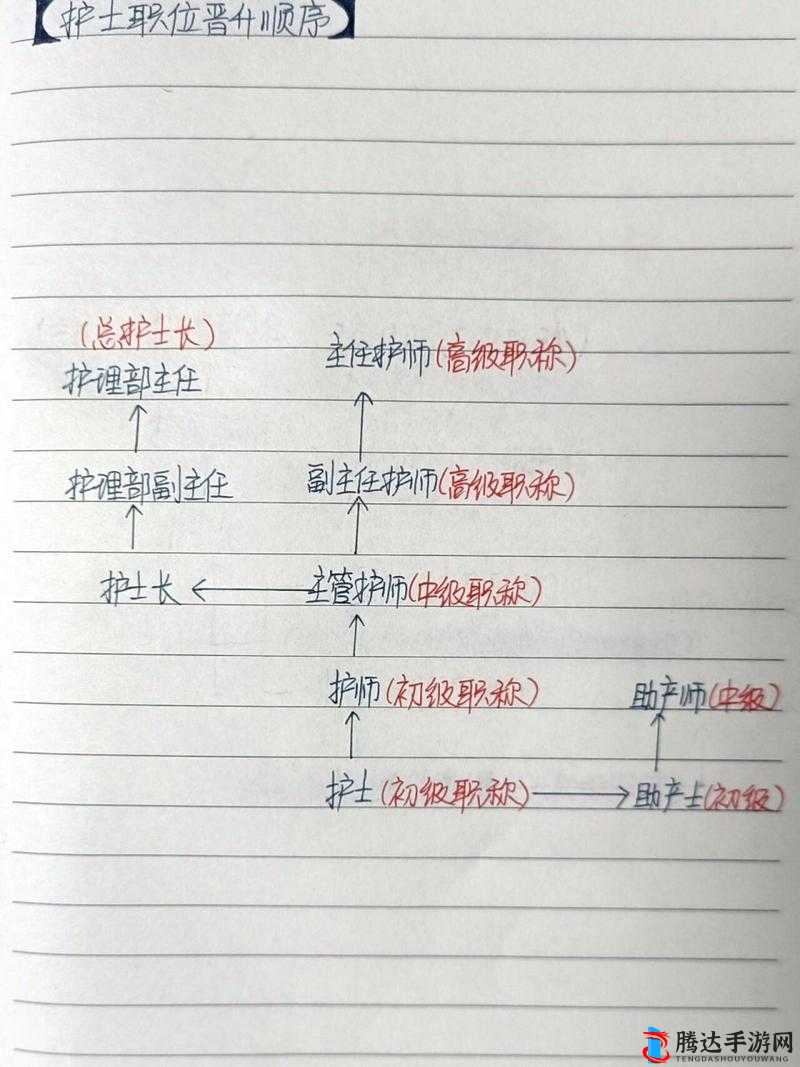 护士职位晋升顺序
(总护士长)
护理部主任
主任护师(高级职称)
护理部副主任
副主任护师(高级职称)
护士长
主管护师(中级职称)
护师(初级职称)
助产师(中级)
护士(初级职称)
助产士(初级)
腾达手游网
TENGDASHOUYOUWANG